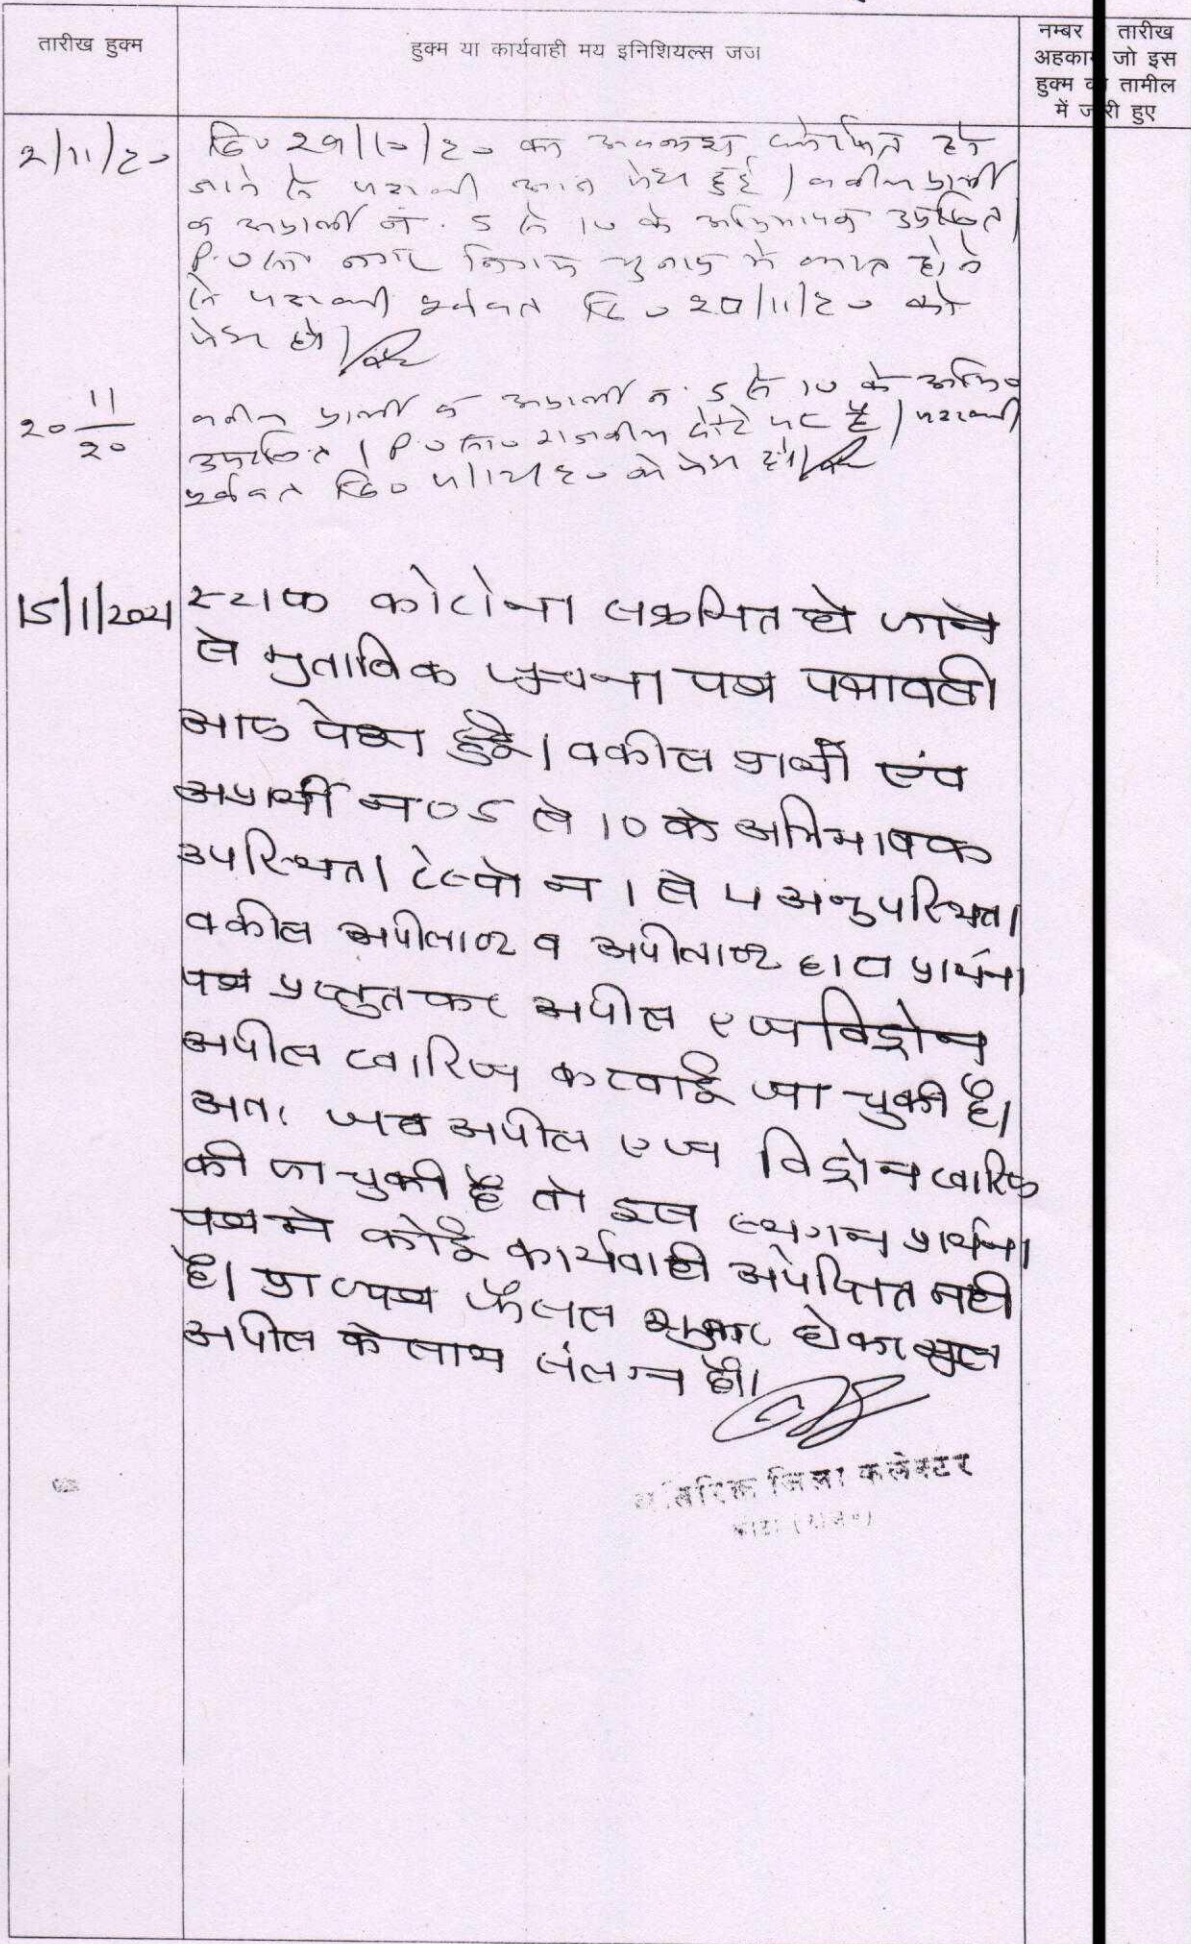 तारीख हुक्म
हुक्म या कार्यवाही मय इनिशियल्स जज
नम्बर तारीख
अहकाम जो इस
हुक्म की तामील
में जारी हुए
2/11/20
दि० 29/10/20 का अवकाश घोषित हो
जाने से पत्रावली आज पेश हुई। वकील प्रार्थी
व अप्रार्थी नं. 5 से 10 के अभिभाषक उपस्थित।
P.O सा० नगर निगम चुनाव में व्यस्त होने
से पत्रावली पूर्ववत दि० 20/11/20 को
पेश हो।
20 11/20
वकील प्रार्थी व अप्रार्थी न. 5 से 10 के अभि०
उपस्थित। P.O सा० राजकीय दौरे पर है। पत्रावली
पूर्ववत दि० को पेश हो।
15/1/2021
स्टाफ कोरोना सक्रमित हो जाने
से मुताबिक सूचना पत्र पत्रावली
आज पेश हुई। वकील प्रार्थी एंव
अप्रार्थी न० 5 से 10 के अभिभाषक
उपस्थित। रेस्पो न 1 से 4 अनुपस्थित।
वकील अपीलाण्ट व अपीलाण्ट द्वारा प्रार्थना
पत्र प्रस्तुत कर अपील एज विड्रोन
अपील खारिज करवाई जा चुकी है।
अतः जब अपील एज विड्रोन खारिज
की जा चुकी है तो इस स्थगन प्रार्थना
पत्र मे कोई कार्यवाही अपेक्षित नही
है। प्रा० पत्र फैसल शुमार होकर मूल
अपील के साथ संलग्न हो।
अतिरिक्त जिला कलेक्टर
कोटा (राज०)